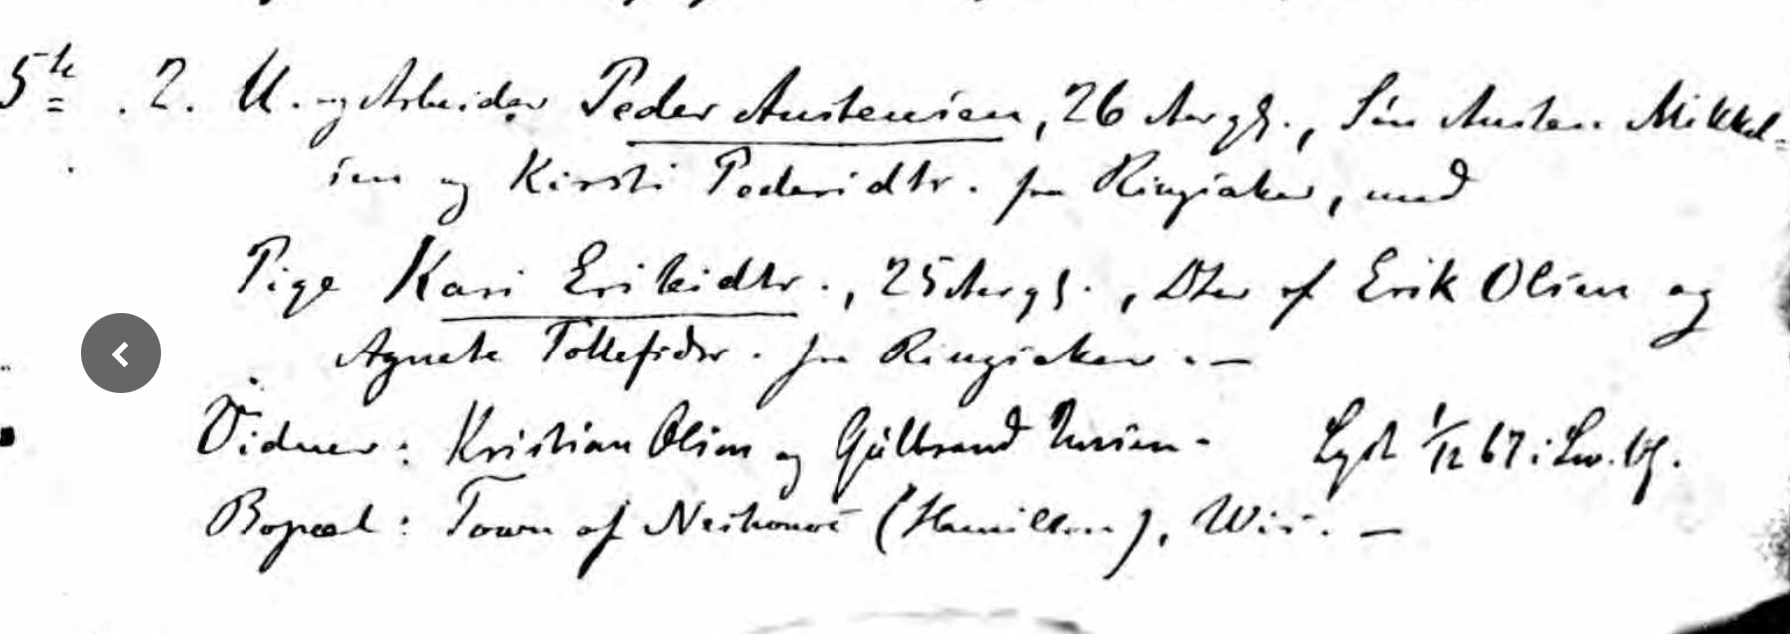 5te . 2. U. og Arbeider Peder Austensen, 26 Aar gl., Søn Austen Mikkel-
sen og Kirsti Pedersdtr. fra Ringsaker, med
Pige Kari Eriksdtr., 25 Aar gl., Dtter af Erik Olsen og
Agnete Tollefsdr. fra Ringsaker. —
Vidner: Kristian Olsen og Gulbrand Lyst 1/12 67 i
Bopæl: Town of Neshonoc (Hamilton), Wis. —